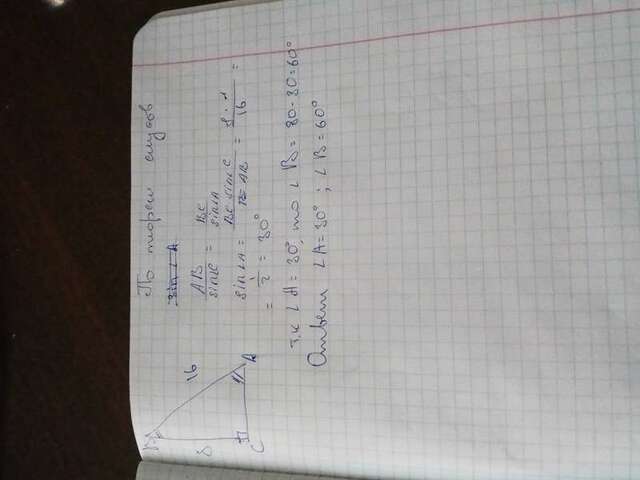 По теореме синусов
sin∠A
AB/sinC = BC/sin∠A
sin∠A = BC·sinC/AB = 8·1/16 =
= 1/2 = 30°
т.к ∠A = 30°, то ∠B = 90-30=60°
Ответ ∠A=30° ; ∠B=60°
B
16
8
C
A